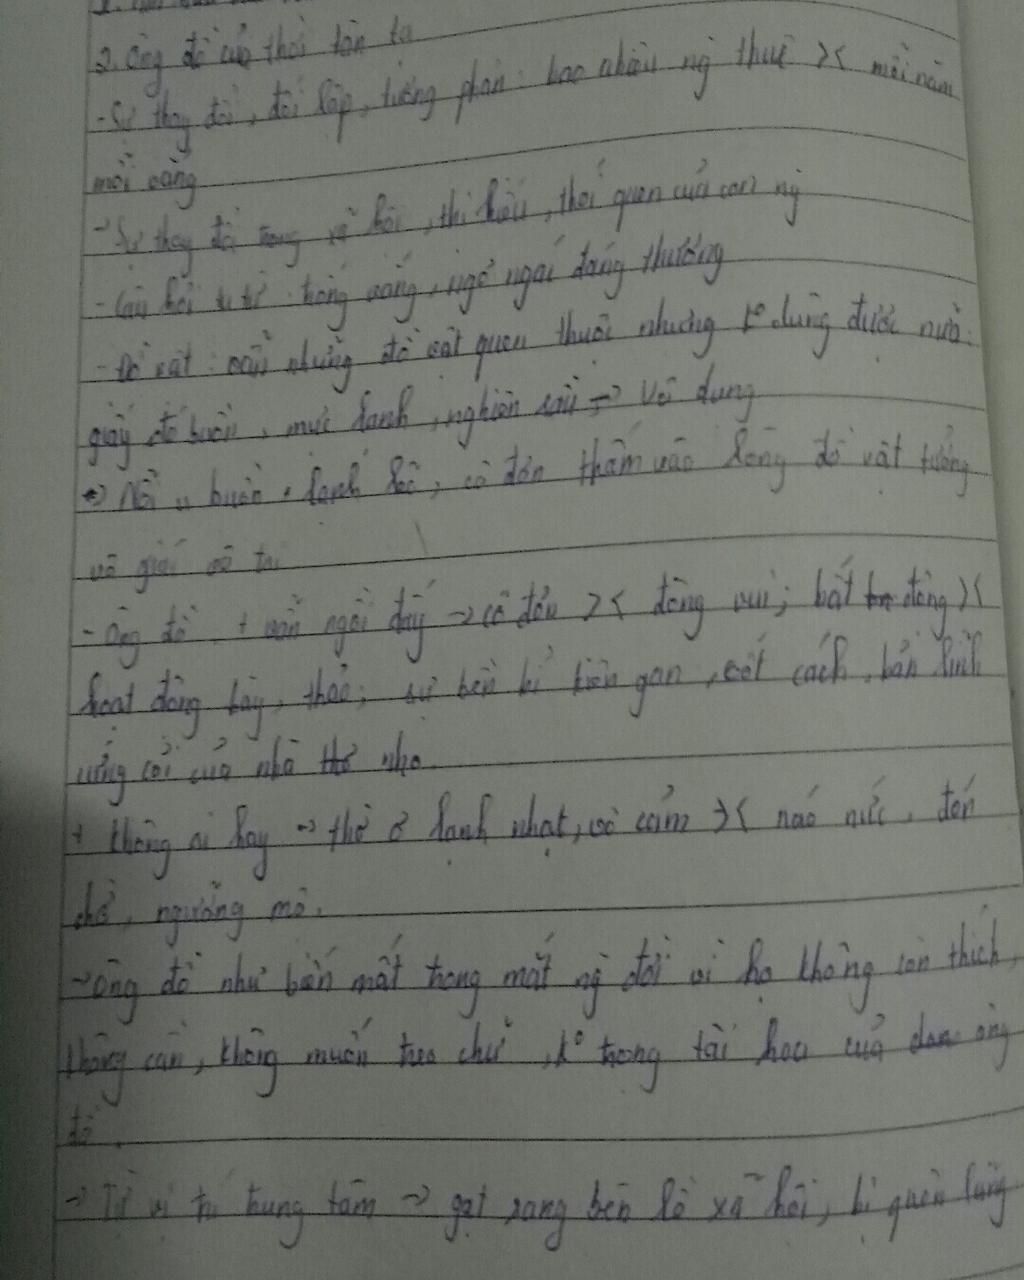 2. Ông đồ của thời tàn tạ
- Sự thay đổi, đối lập, tương phản: bao nhiêu ng thuê >< mỗi năm
mỗi vắng
→ Sự thay đổi trong xã hội, thị hiếu, thói quen của con ng
- Câu hỏi tu từ: trống vắng, ngơ ngác đáng thương
- Đồ vật: vẫn những đồ vật quen thuộc nhưng ko dùng được nữa:
giấy đỏ buồn, mực đọng, nghiên sầu → vô dụng
→ Nỗi u buồn, lạnh lẽo, cô đơn thấm vào lòng đồ vật tưởng
vô giác vô tri
- Ông đồ: + vẫn ngồi đấy → cô đơn >< đông vui; bất động ><
hoạt động tay, thảo; sự bền bỉ kiên gan, cốt cách, bản lĩnh
cứng cỏi của nhà nho.
+ Không ai hay → thờ ơ lạnh nhạt, vô cảm >< náo nức, đón
chờ, ngưỡng mộ.
→ Ông đồ như biến mất trong mắt ng đời vì họ không còn thích,
không cần, không muốn treo chữ, ko trọng tài hoa của ông
đồ.
→ Từ vị trí trung tâm → gạt sang bên lề xã hội, bị quên lãng